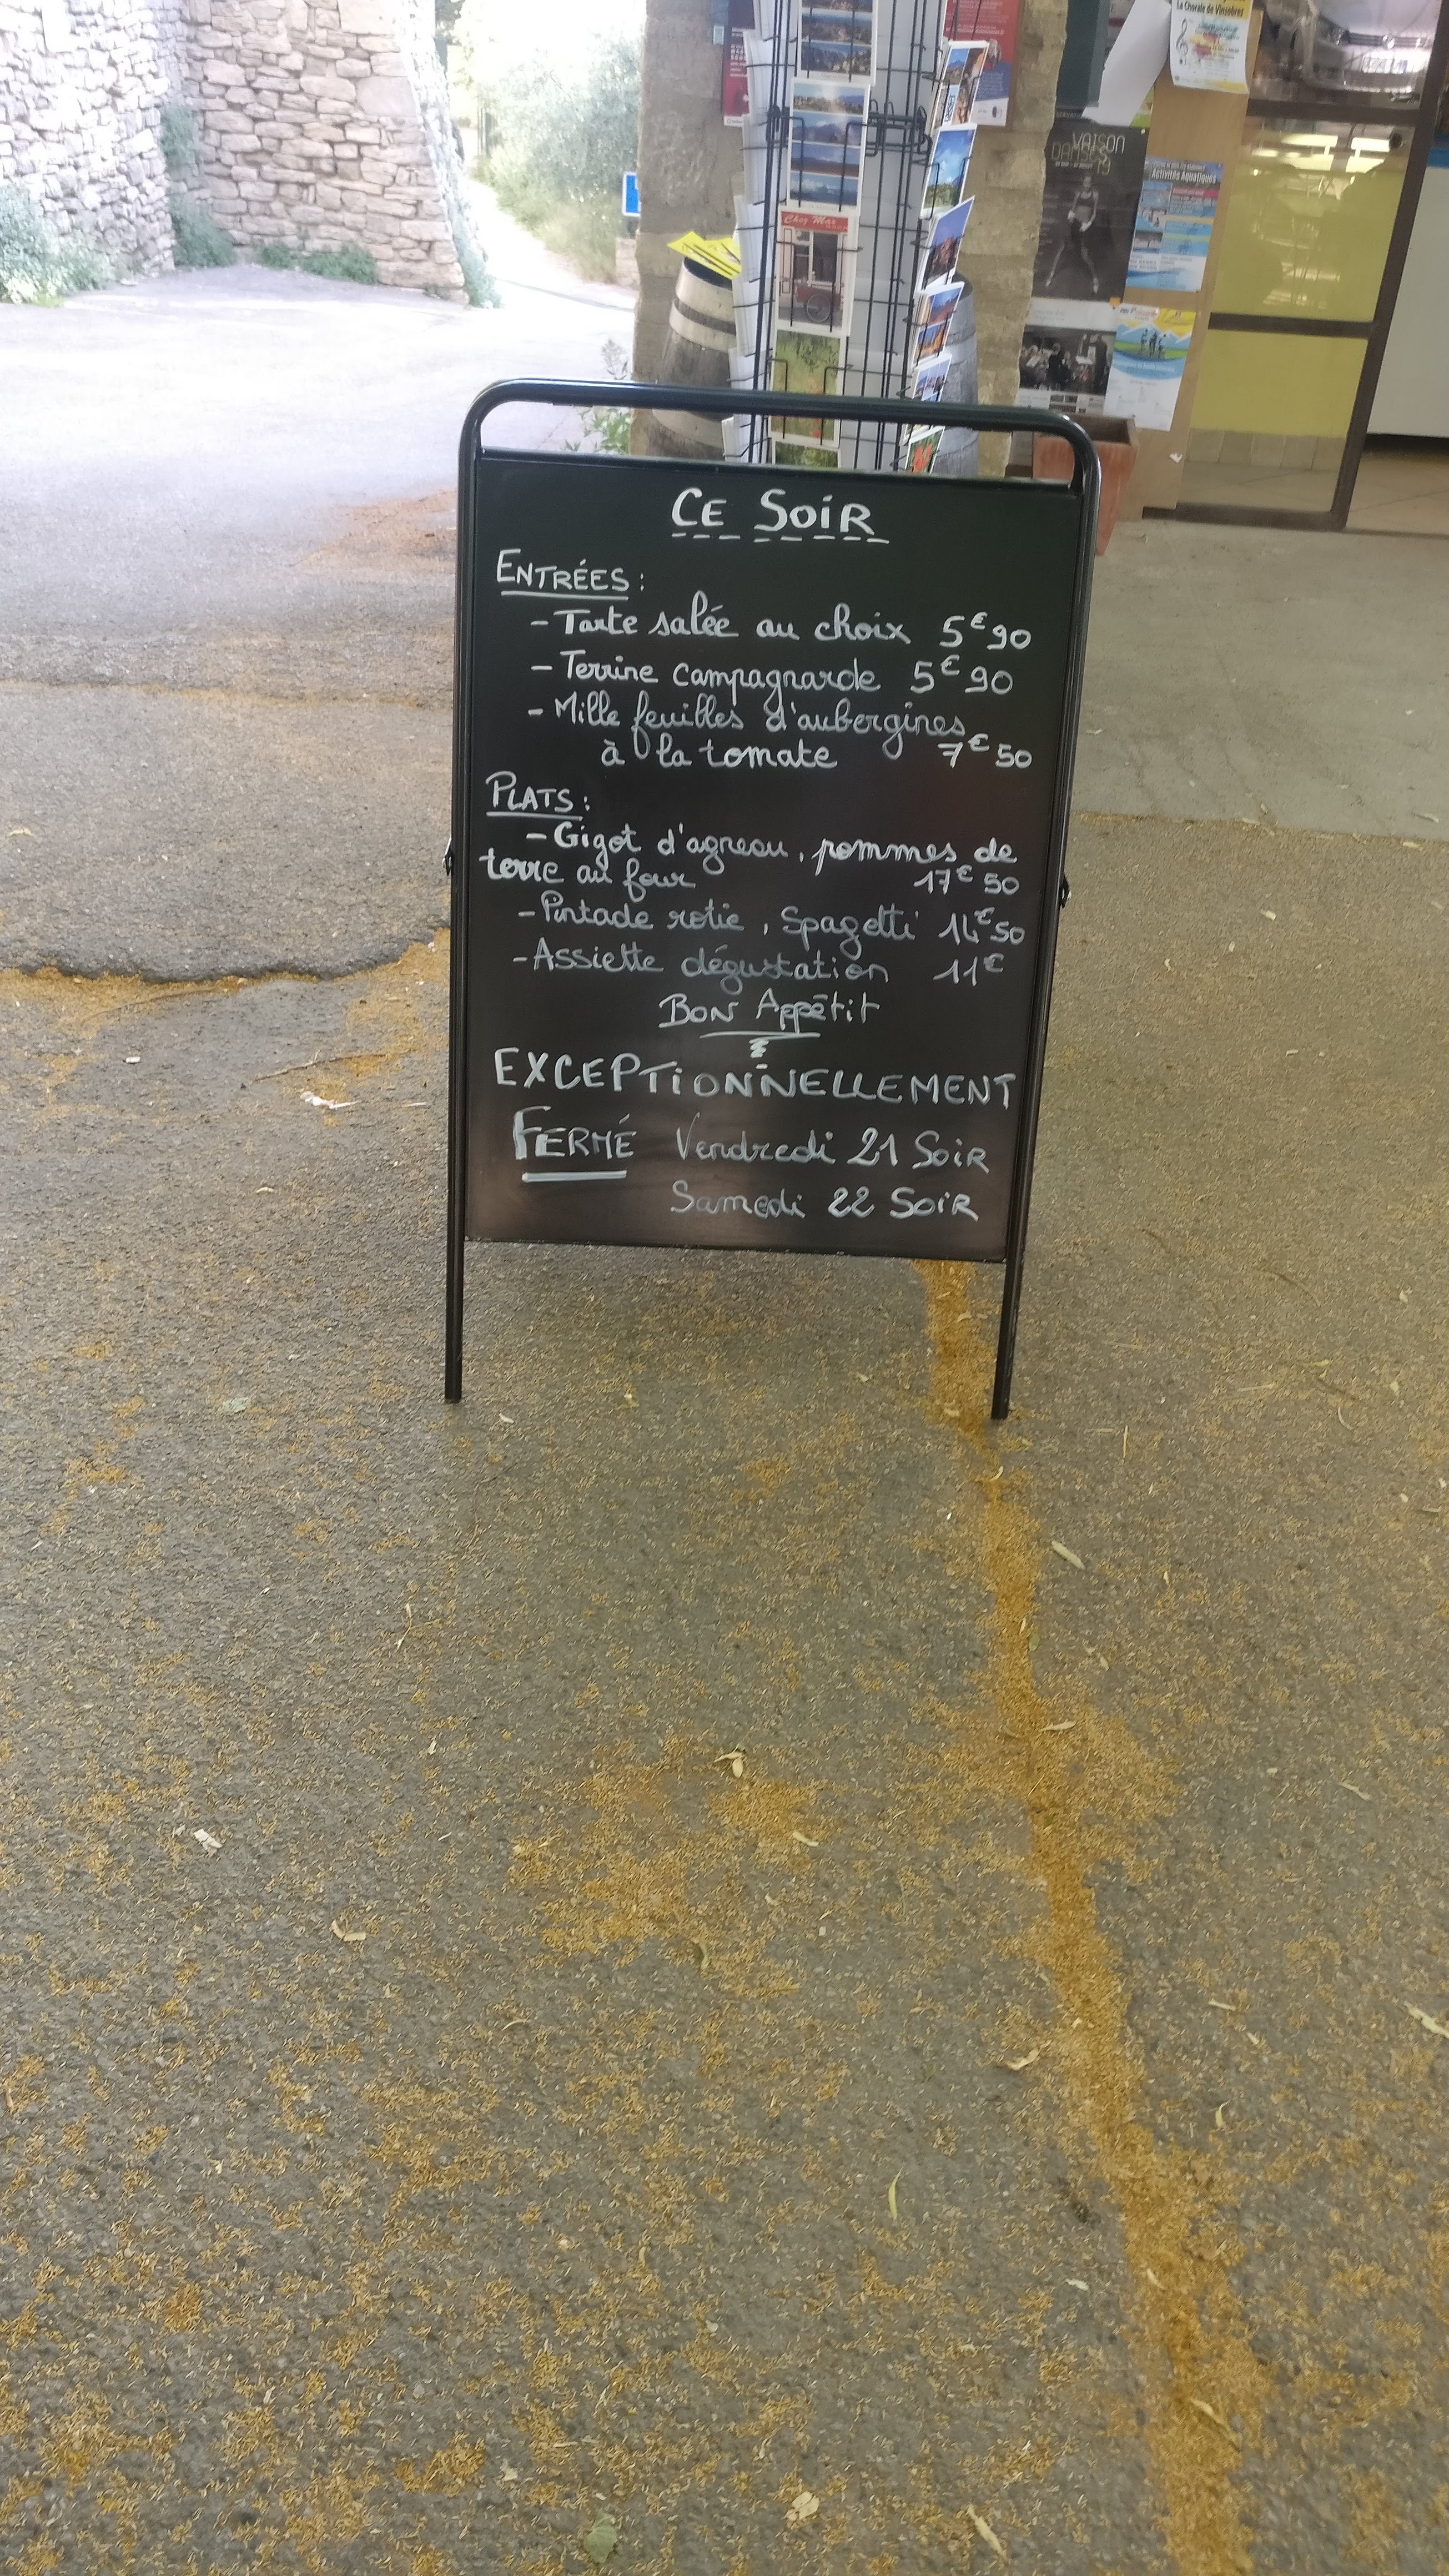 La Chorale de Vinsobres
VAISON
DANSES
19
Activités Aquatiques
Chez Max
CE SOIR
ENTRÉES :
- Tarte salée au choix 5€90
- Terrine campagnarde 5€90
- Mille feuilles d'aubergines
à la tomate 7€50
PLATS :
- Gigot d'agneau, pommes de
terre au four 17€50
- Pintade rotie, Spagetti 14€50
- Assiette dégustation 11€
BON Appétit
EXCEPTIONNELLEMENT
FERMÉ Vendredi 21 SOIR
Samedi 22 SOIR